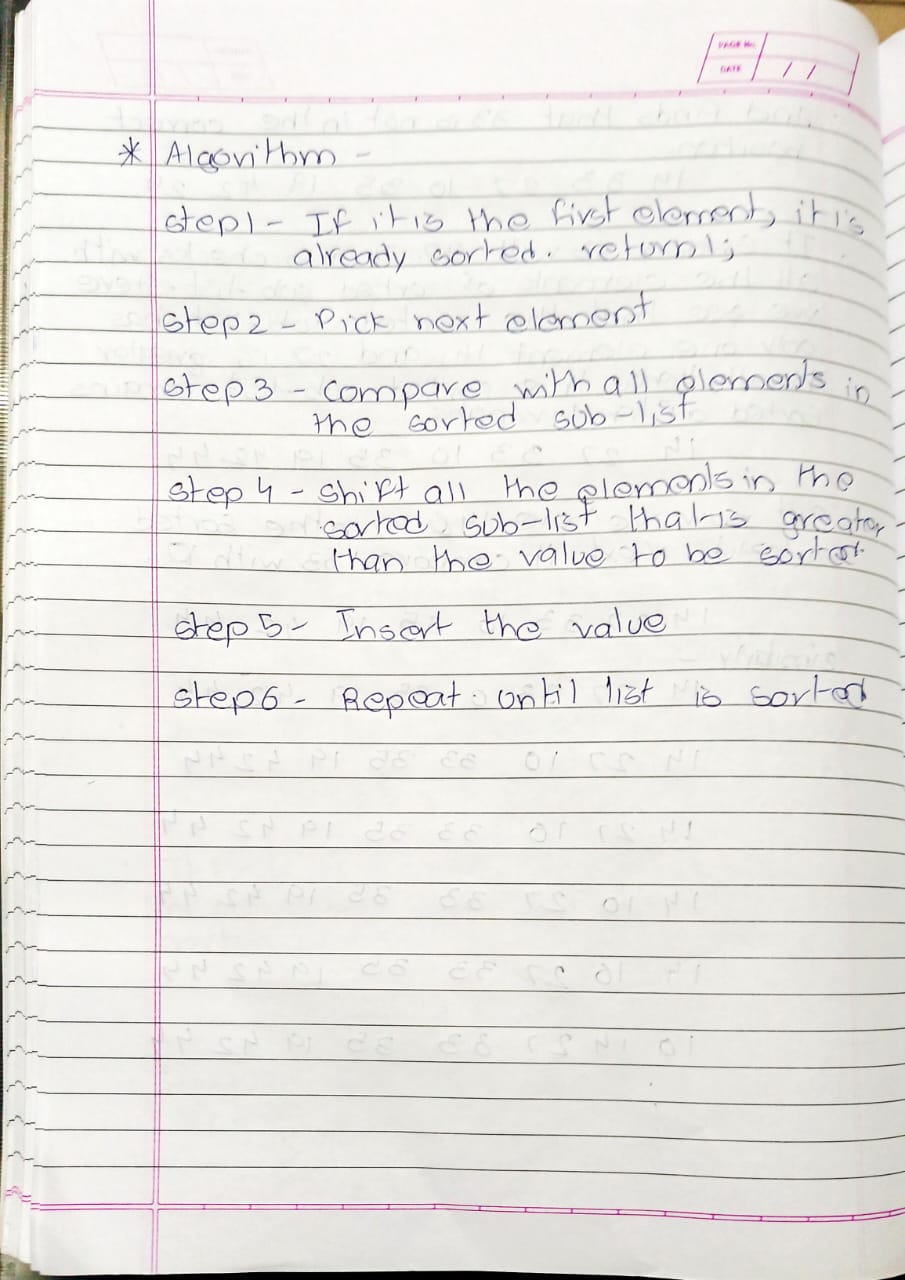 PAGE No.
DATE / /
* Algorithm -
Step1 - If it is the first element, it is
already sorted. return1;
Step2 - Pick next element
Step3 - Compare with all elements in
the sorted sub-list
Step 4 - Shift all the elements in the
sorted sub-list that is greater
than the value to be sorted.
Step 5 - Insert the value
Step6 - Repeat until list is sorted